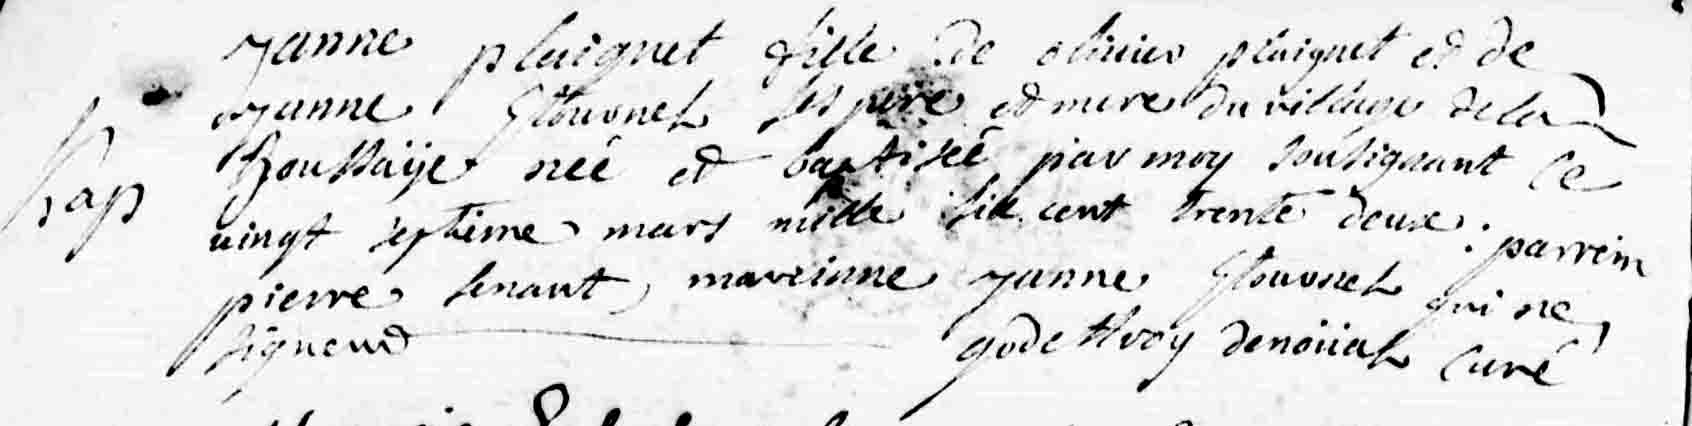 janne pluignet fille de olivier pluignet et de
janne Glouonel ses pere et mere du village de la
houssaije née et baptisée par moy sousignant ce
bap
vingt septieme mars mille six cent trente deux : parrein
pierre lenant, mareinne janne Glouonel qui ne
signent
godeffroy denoüal curé